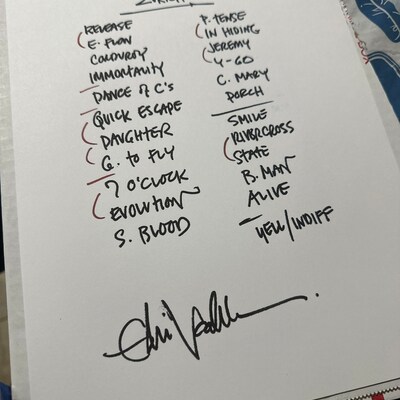 RELEASE
E. FLOW
CORDUROY
IMMORTALITY
DANCE OF C'S
QUICK ESCAPE
DAUGHTER
G. TO FLY
7 O'CLOCK
EVOLUTION
S. BLOOD
P. TENSE
IN HIDING
JEREMY
Y-GO
C. MARY
PORCH
SMILE
RIVERCROSS
STATE
B. MAN
ALIVE
YELL/INDIFF